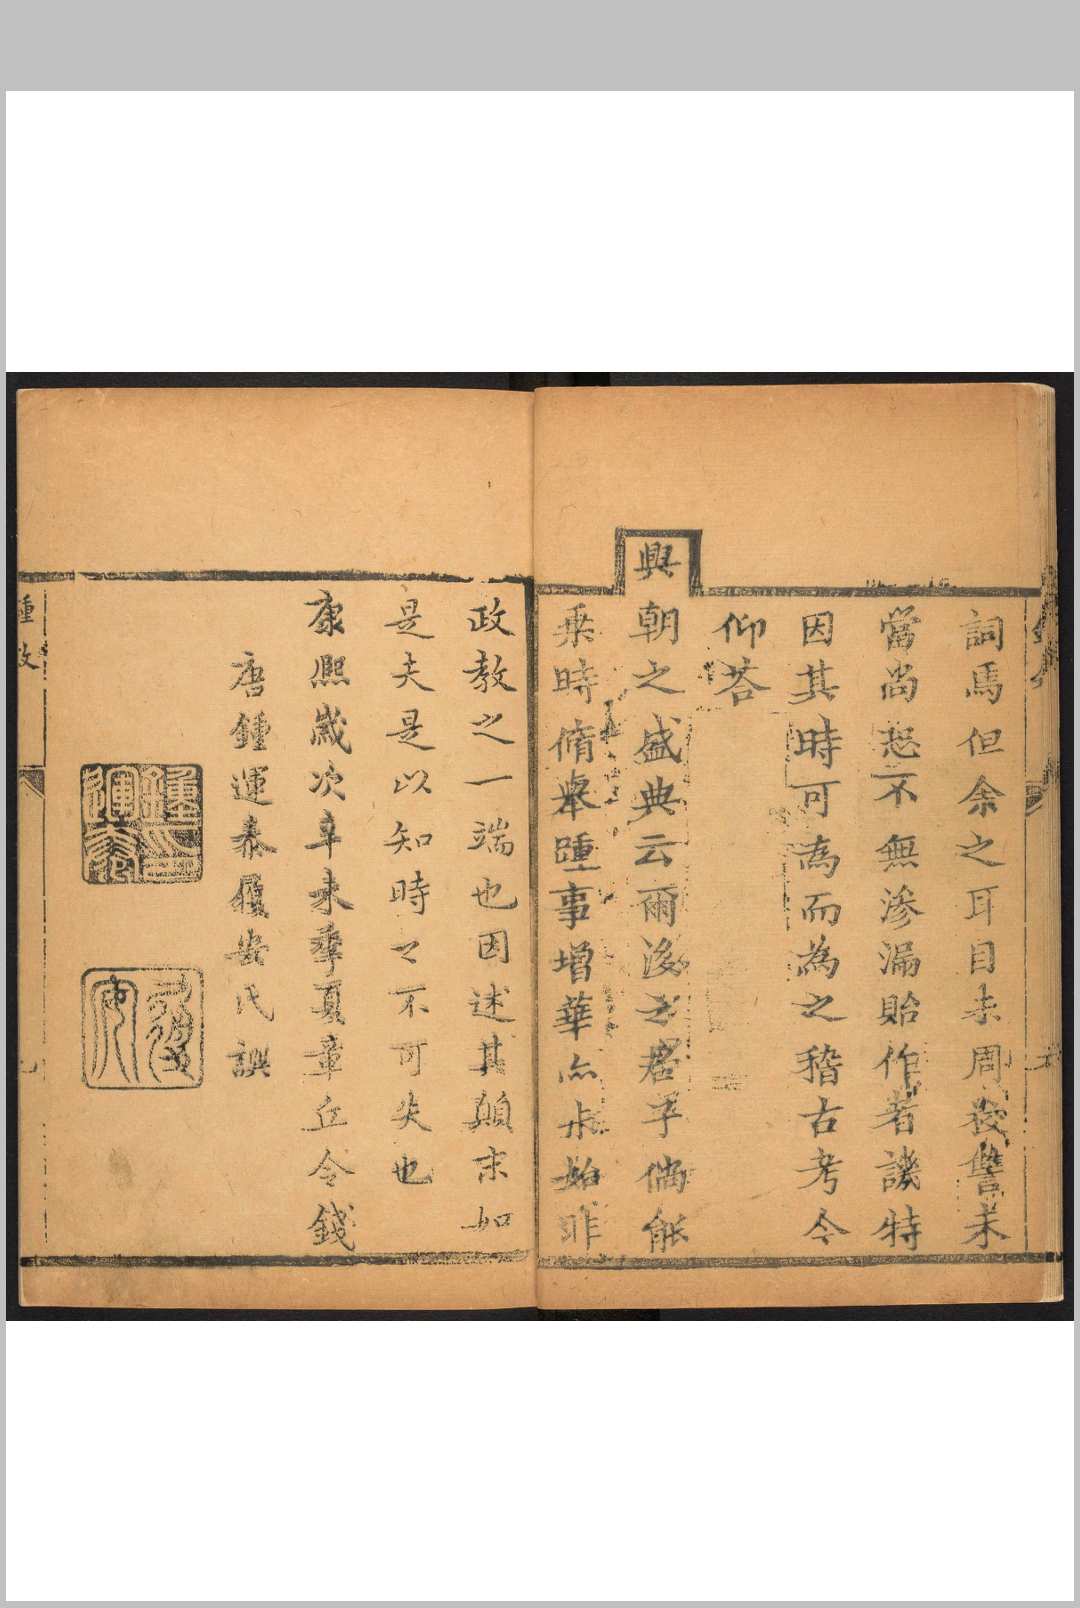 詞焉但余之耳目未周校讐未
當尚恐不無滲漏貽作者譏特
因其時可為而為之稽古考今
仰荅
興朝之盛典云爾後之君子倘能
乗時脩舉踵事增華亦未始非
政教之一端也因述其顛末如
是夫是以知時之不可失也
康熙歲次辛未季夏章丘令錢
唐鍾運泰履安氏譔
鍾運泰印
履安